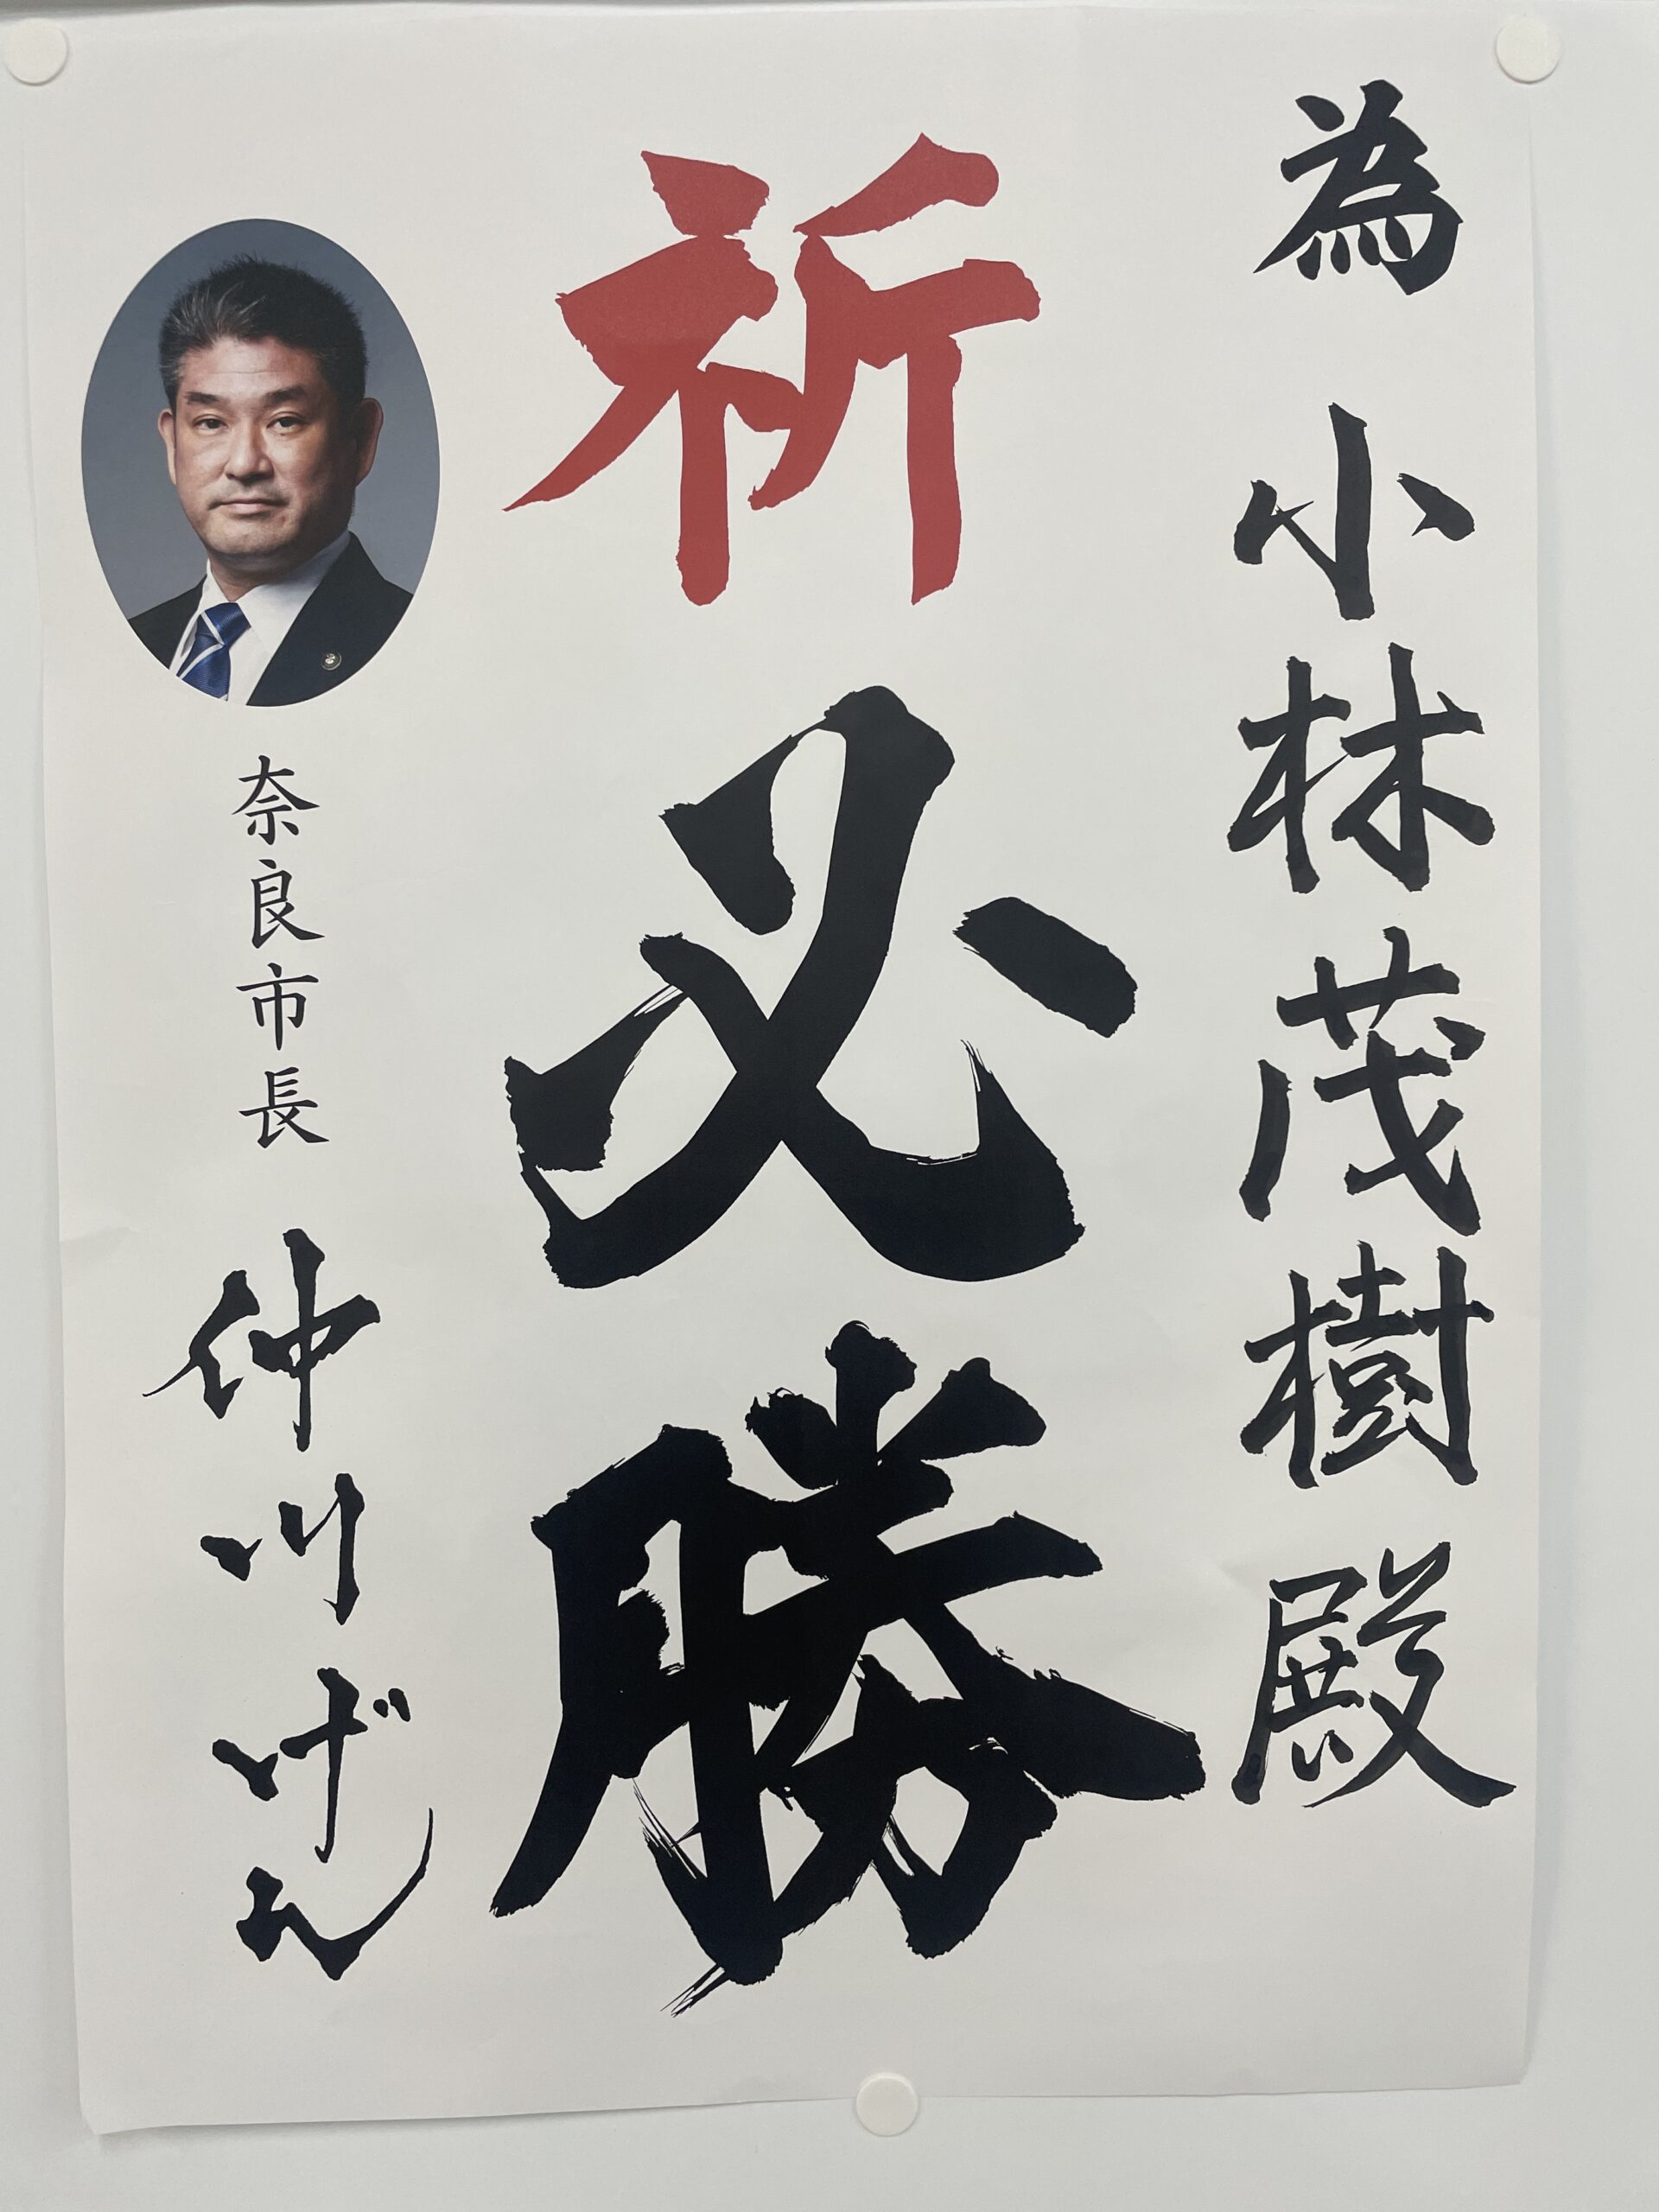 為 小林茂樹 殿
祈必勝
奈良市長 仲川げん